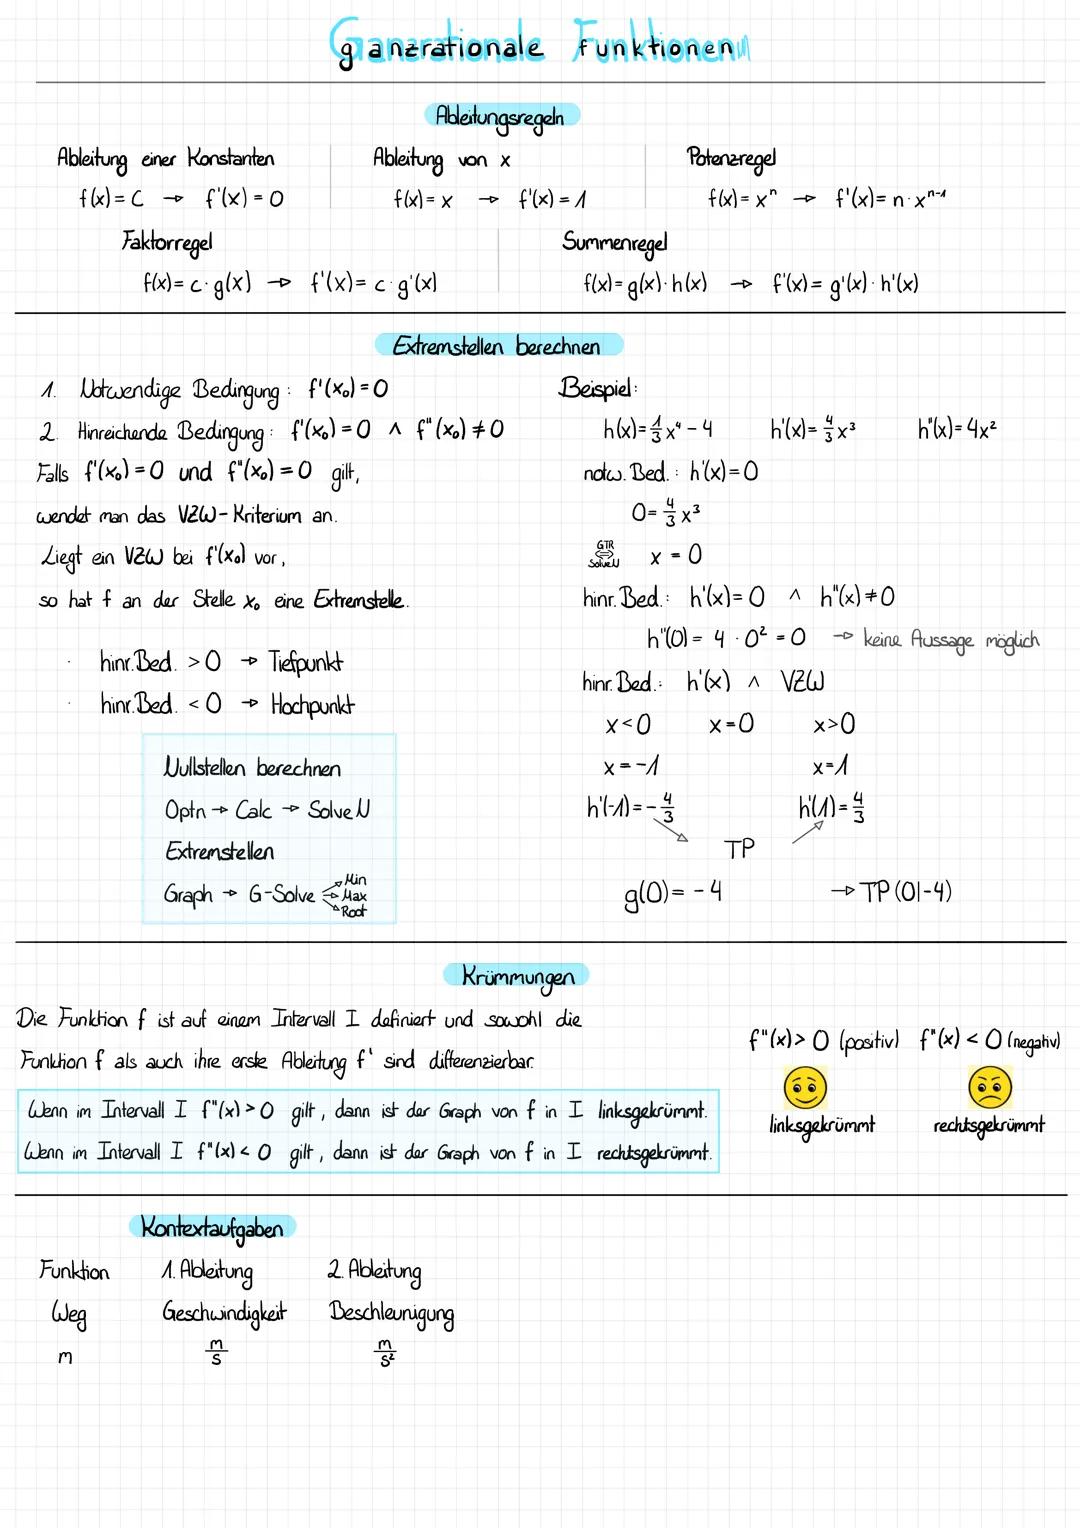 ganzrationale Funktionen
Ableitungsregeln
Ableitung einer Konstanten
f(x) = C → f'(x) = 0
Ableitung von x
f(x) = x → f'(x) = 1
Potenzregel
f(x) = xⁿ → f'(x) = n · xⁿ⁻¹
Faktorregel
f(x) = c · g(x) → f'(x) = c · g'(x)
Summenregel
f(x) = g(x) · h(x) → f'(x) = g'(x) · h'(x)
Extremstellen berechnen
1. Notwendige Bedingung: f'(x₀) = 0
2. Hinreichende Bedingung: f'(x₀) = 0 ∧ f"(x₀) ≠ 0
Falls f'(x₀) = 0 und f"(x₀) = 0 gilt,
wendet man das VZW-Kriterium an.
Liegt ein VZW bei f'(x₀) vor,
so hat f an der Stelle x₀ eine Extremstelle.
· hinr. Bed. > 0 → Tiefpunkt
· hinr. Bed. < 0 → Hochpunkt
Nullstellen berechnen
Optn → Calc → SolveN
Extremstellen
Graph → G-Solve → Min
→ Max
→ Root
Beispiel:
h(x) = 1/3 x⁴ - 4 h'(x) = 4/3 x³ h"(x) = 4x²
notw. Bed.: h'(x) = 0
0 = 4/3 x³
GTR
⇔
SolveN
x = 0
hinr. Bed.: h'(x) = 0 ∧ h"(x) ≠ 0
h"(0) = 4 · 0² = 0 → keine Aussage möglich
hinr. Bed.: h'(x) ∧ VZW
x<0 x=0 x>0
x=-1 x=1
h'(-1) = -4/3 h'(1) = 4/3
TP
g(0) = -4 → TP(0|-4)
Krümmungen
Die Funktion f ist auf einem Intervall I definiert und sowohl die
Funktion f als auch ihre erste Ableitung f' sind differenzierbar.
Wenn im Intervall I f"(x) > 0 gilt, dann ist der Graph von f in I linksgekrümmt.
Wenn im Intervall I f"(x) < 0 gilt, dann ist der Graph von f in I rechtsgekrümmt.
f"(x) > 0 (positiv) f"(x) < 0 (negativ)
linksgekrümmt rechtsgekrümmt
Kontextaufgaben
Funktion 1. Ableitung 2. Ableitung
Weg Geschwindigkeit Beschleunigung
m m/s m/s²